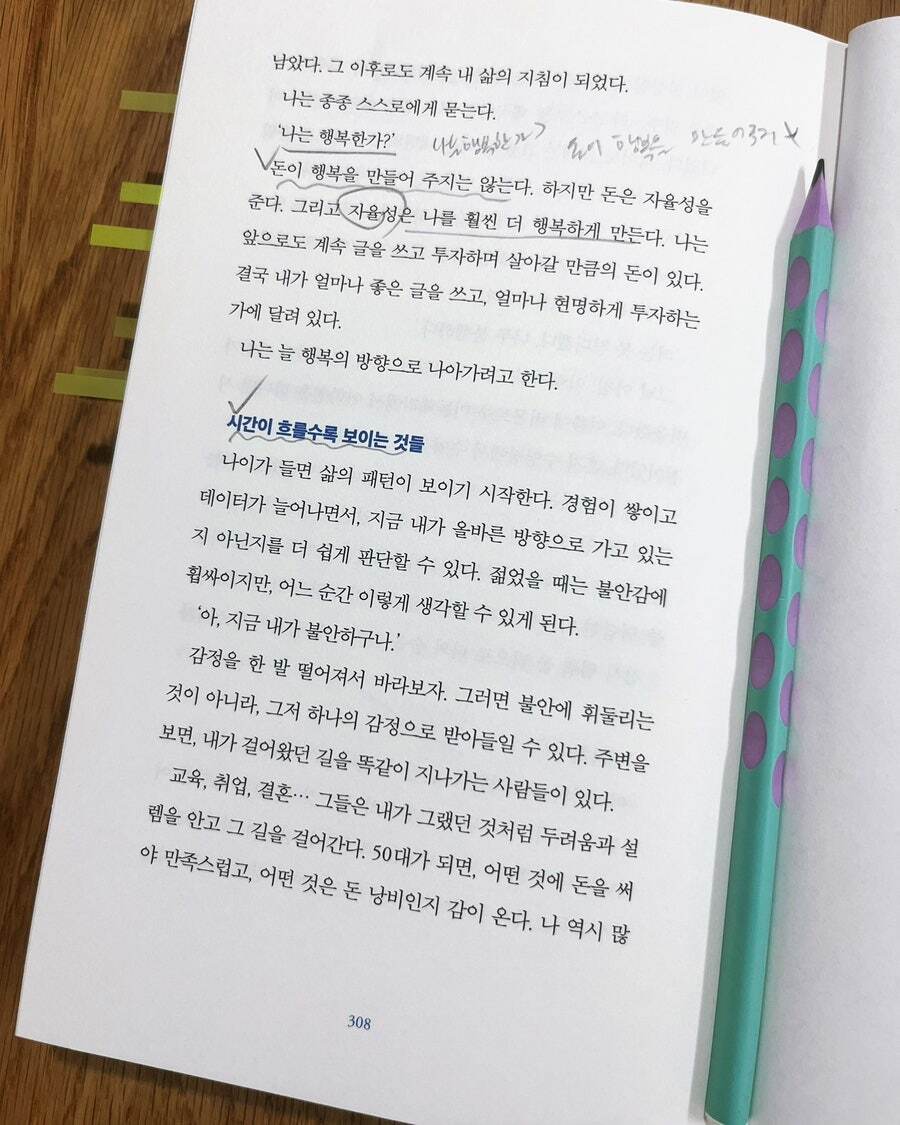 남았다. 그 이후로도 계속 내 삶의 지침이 되었다.
나는 종종 스스로에게 묻는다.
'나는 행복한가?' 나는 행복한가? 돈이 행복을 만들어주지 x
돈이 행복을 만들어 주지는 않는다. 하지만 돈은 자율성을
준다. 그리고 자율성은 나를 훨씬 더 행복하게 만든다. 나는
앞으로도 계속 글을 쓰고 투자하며 살아갈 만큼의 돈이 있다.
결국 내가 얼마나 좋은 글을 쓰고, 얼마나 현명하게 투자하는
가에 달려 있다.
나는 늘 행복의 방향으로 나아가려고 한다.
시간이 흐를수록 보이는 것들
나이가 들면 삶의 패턴이 보이기 시작한다. 경험이 쌓이고
데이터가 늘어나면서, 지금 내가 올바른 방향으로 가고 있는
지 아닌지를 더 쉽게 판단할 수 있다. 젊었을 때는 불안감에
휩싸이지만, 어느 순간 이렇게 생각할 수 있게 된다.
'아, 지금 내가 불안하구나.'
감정을 한 발 떨어져서 바라보자. 그러면 불안에 휘둘리는
것이 아니라, 그저 하나의 감정으로 받아들일 수 있다. 주변을
보면, 내가 걸어왔던 길을 똑같이 지나가는 사람들이 있다.
교육, 취업, 결혼… 그들은 내가 그랬던 것처럼 두려움과 설
렘을 안고 그 길을 걸어간다. 50대가 되면, 어떤 것에 돈을 써
야 만족스럽고, 어떤 것은 돈 낭비인지 감이 온다. 나 역시 많
308